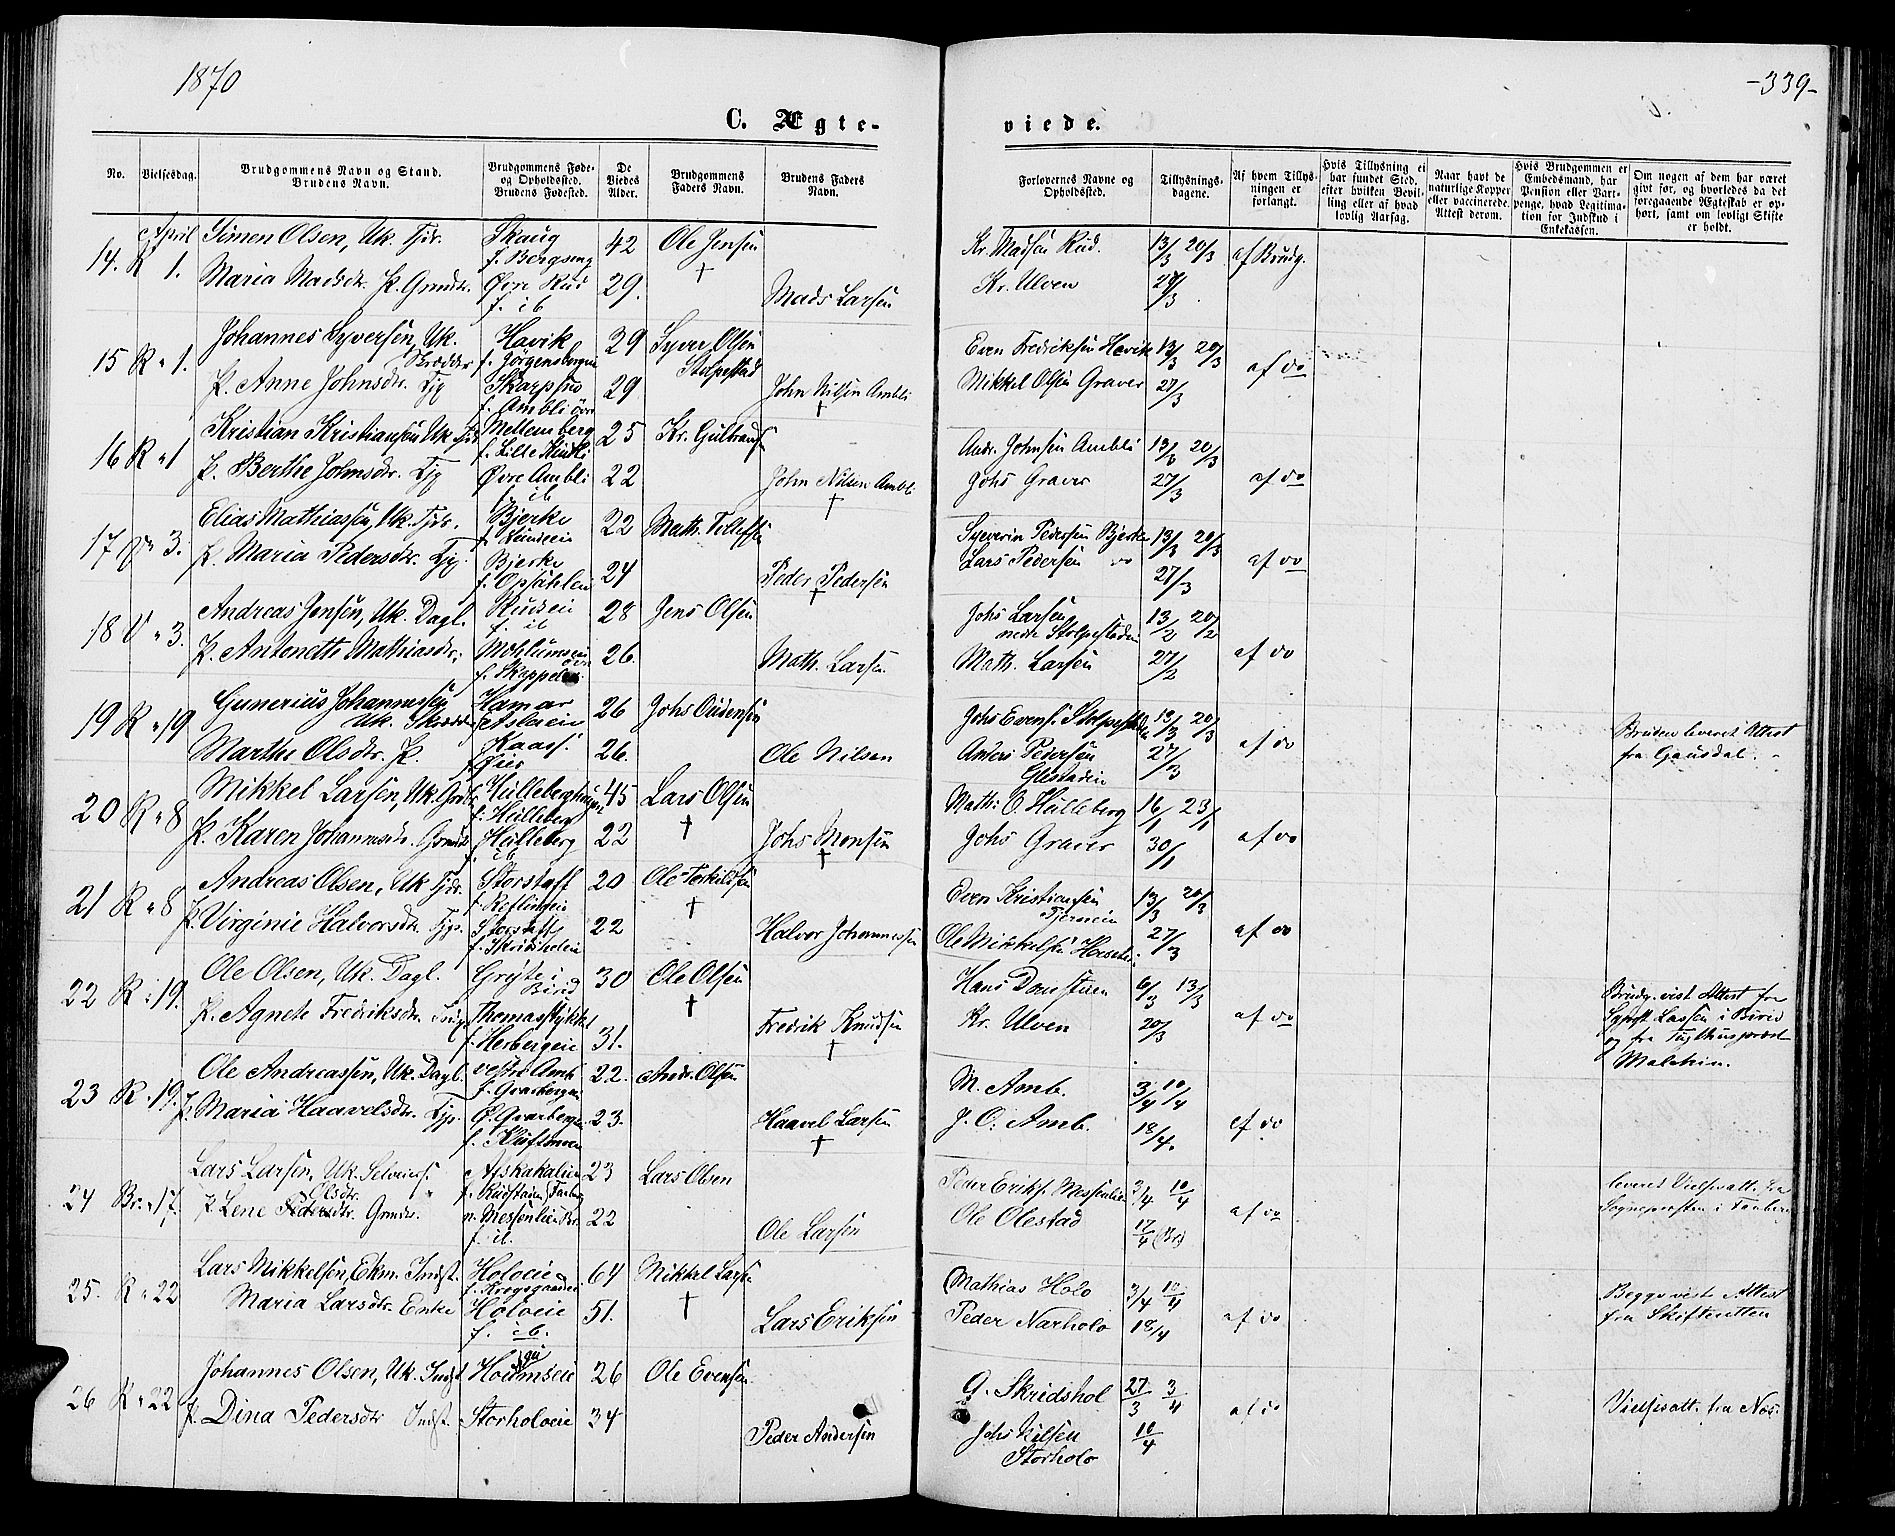 1870
-339-
C. Ægte-
viede.
No.
Vielsesdag.
Brudgommens Navn og Stand.
Brudens Navn.
Brudgommens Føde-
og Opholdssted.
Brudens Fødested.
De
Viedes
Alder.
Brudgommens
Faders Navn.
Brudens Faders
Navn.
Forlovernes Navne og
Opholdssted.
Tillysnings-
dagene.
Af hvem Tillys-
ningen er
forlangt.
Hvis Tillysning ei
har fundet Sted,
efter hvilken Bevil-
ling eller af hvad
lovlig Aarsag.
Naar havt de
naturlige Kopper
eller vaccinerede.
Attest derom.
Hvis Brudgommen er
Embedsmand, har
Pension eller Var-
penge, hvad Legitima-
tion for Indskud i
Enkekassen.
Om nogen af dem har været
givt før, og hvorledes da det
foregaaende Ægteskab er op-
hørt, samt om lovligt Skifte
er holdt.
April
14. R 1.
Simen Olsen, Uk. Tjdr.
Skaug
f. Bergseng
42
Ole Jensen
†
Kr. Madsen Rud.
13/3 20/3
af Brudg.
Maria Madsdr. P. Grmdr.
Øvre Rud
f. ib
29.
Mads Larsen
Kr. Ulven
27/3
15 R " 1.
Johannes Syversen, Uk.
Skrædder
Havik
f. Jørgensbergen
29
Syver Olsen
Stolpestad
Even Fredriksen Hovik
13/3 20/3
af do
P. Anne Johnsdr. Tjg
29
John Nilsen Ambli
†
Mikkel Olsen Graver
27/3
f. Ambli øvre
16 R " 1
Kristian Kristiansen Uk Tjdr
Mellemberg
25
Kr. Gulbrands
Andr. Johnsen Ambli
13/3 20/3
af do
P. Berthe Johnsdr. Tjg
Øvre Ambli
f. ib
22
John Nilsen Ambli
†
Johs Graver
27/3
17 " 3.
Elias Mathiassen, Uk. Tjdr.
Bjerke
22
Math. Tollefsen
Syverin Pedersen Bjerke
13/3 20/3
af do
P. Maria Pedersdr. Tjg.
Bjerke
f. Opsahleie
24
Peder Pedersen
†
Lars Pedersen do
27/3
18 V " 3.
Andreas Jensen, Uk. Dagl.
f. ib
28
Jens Olsen
Johs Larsen
nedre Stolpestadeie
13/2 20/2
af do
P. Antonette Mathiasdr.
26.
Math. Larsen
Math. Larsen
27/2
19 R " 19
Gunerius Johannessen
Uk. Skrædder
Hamar
26
Johs Oudensen
Johs Evens. Stolpestad
13/3 20/3
af do
Bruden leveret Attest
fra Gausdal.
Marthe Olsdr. P.
26.
Ole Nilsen
Anders Pedersen
Glestadeie
27/3
20 R " 8
Mikkel Larsen, Uk. Grdbr.
f. Hulleberg
45
Lars Olsen
†
Math: O. Hulleberg
16/1 23/1
af do
P. Karen Johannesdr. Grmdr
Hulleberg
f. ib
22
Johs Monsen
†
Johs Graver
30/1
21 R " 8
Andreas Olsen, Uk Tjdr.
Storstaff
20
Ole Torkildsen
†
Even Kristiansen
13/3 20/3
af do
P. Virginie Halvorsdr. Tjg.
Storstaff
22
Halvor Johannessen
Ole Mikkelsen
27/3
22 R " 19.
Ole Olsen, Uk. Dagl.
Grøte i
Birid
30
Ole Olsen
†
Hans Dornstuen
6/3 13/3
af do
Brudg. vist Attest fra
Sgprst Lassen i Birid
og fra Tugthuspræst
P. Agnete Fredriksdr.
Thomasstykket
f. Herbergeie
31.
Fredrik Knudsen
†
Kr. Ulven
20/3
23 R. 19.
Ole Andreassen, Uk. Dagl.
vestre Amb
22.
Andr. Olsen
M. Amb.
3/4 10/4
af do
P. Maria Haavelsdr. Tjg.
23.
Haavel Larsen
†
J. O. Amb.
18/4.
24 Br. " 17.
Lars Larsen, Uk. Selveiers.
23
Lars Olsen
Peder Eriks. Messenlien
3/4 10/4
af do
leveret Vielsesatt. fra
Sognepresten i Faaberg
Olsdr.
P. Lene Pedersdr. Grmdr.
22
Ole Larsen
Ole Olestad
17/4 (Br)
25. R " 22
Lars Mikkelsen, Ekm. Indst.
Holoeie
64
Mikkel Larsen
†
Mathias Holo
3/4 10/4
af do
Begge viste Attest
fra Skifteretten
Maria Larsdr. Enke
Holoeie
f. ib.
51.
Lars Eriksen
Peder Narholo
18/4
26 R " 22
Johannes Olsen, Uk. Indst
26
Ole Evensen
G. Skridshol
27/3 3/4
af do
Vielsesatt. fra Næs.
P. Dina Pedersdr Indst.
Storholoeie
34
Peder Andersen
Johs Nilsen
Storholo
10/4